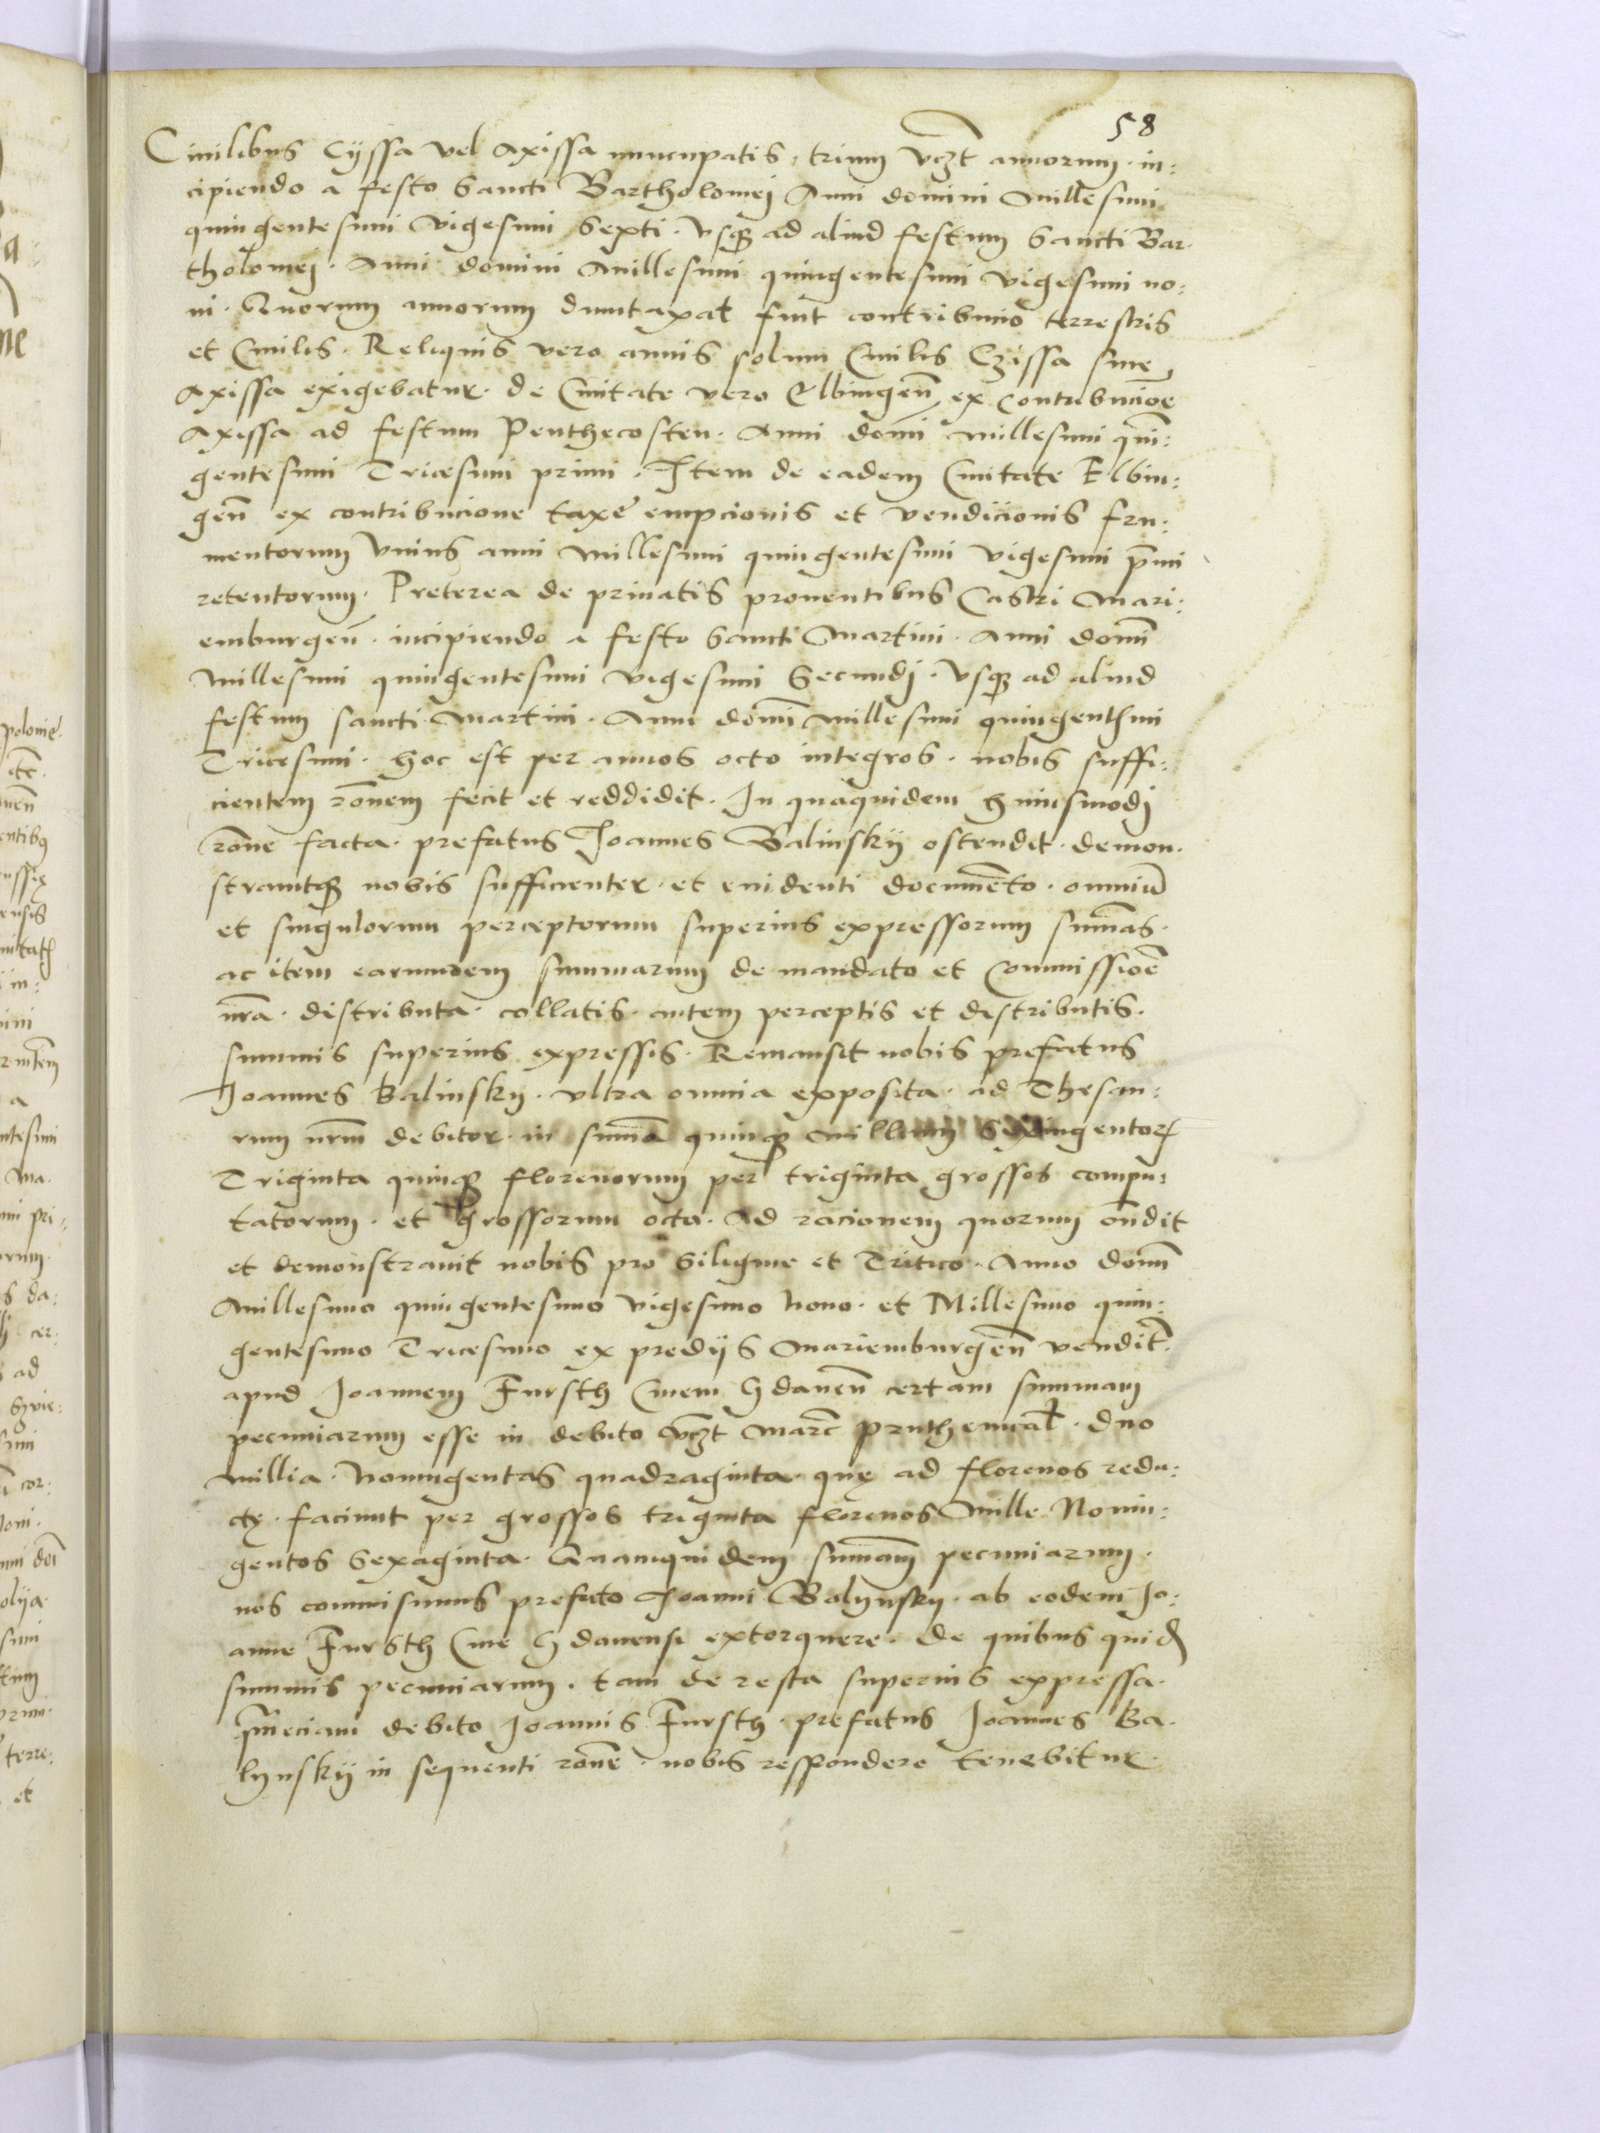 58
Ciuilibus Cyssa vel Axissa nuncupatis, trium vczt annorum in:
cipiendo a festo Sancti Bartholomej Anni domini Millesimi
quingentesimi vigesimi Sexti. vsq3 ad aliud festum Sancti Bar-
tholomej. Anni domini Millesimi quingentesimi vigesimi no:
ni. Quorum annorum duntaxat fuit contribucio terrestris
et Ciuilis. Reliquis vero annis solum Ciuilis Czissa siue
Axissa exigebatur. de Ciuitate vero Elbingeñ ex Contribucioñe
Axissa ad festum Penthecosten. Anni domi Millesimi quin:
gentesimi Tricesimi primi. Item de eadem Ciuitate Elbin:
geñ ex contribucione taxe empcionis et vendicionis fru:
mentorum vnius anni Millesimi quingentesimi vigesimi pmi
retentorum. Preterea de priuatis prouentibus Castri Mari:
emburgeñ. incipiendo a festo Sancti Martini. Anni domi
Millesimi quingentesimi vigesimi Secundj. vsq3 ad aliud
festum sancti Martini. Anni domi Millesimi quingenthmi
Tricesimi. hoc est per annos octo integros. nobis suffi:
cientem rõnem fecit et reddidit. In quaquidem huiusmodj
rõne facta. prefatus Joannes Balinskÿ ostendit. demon-
strauitq3 nobis sufficienter. et euidenti documẽto. omniũ
et singulorum perceptorum superius expressorum sum̃as.
ac item earumdem summarum de mandato et Commissioẽ
nrã. distributa. collatis autem perceptis et distributis.
summis superius expressis. Remansit nobis prefatus
Joannes Balinsky. vltra omnia exposita. ad Thesau:
rum nrm̃ debitor. in sum̃a quinq3 Millium
Triginta quinq3 florenorum per triginta grossos compu:
tatorum. et Grossorum octa. Ad racionem quorum oñdit
et demonstrauit nobis pro Siligine et Tritico. Anno domi
Millesimo quingentesimo vigesimo Nono. et Millesimo quin:
gentesimo Tricesimo ex predijs Mariemburgeñ vendit.
apud Joannem Fursth Ciuem Gdaneñ certam summam
pecuniarum esse in debito vczt Marc pruthenical. duo
millia. Noningentas quadraginta. quę ad florenos redu:
ctę. faciunt per grossos triginta florenos Mille Nonin:
gentos Sexaginta. Quamquidem sum̃am pecuniarum.
nos commisimus prefato Joanni Balynsky. ab eodem Jo:
anne Fursth Ciue Gdanensi extorquere. de quibus quid
summis pecuniarum. tam de resta superius expressa.
q̃meciam debito Joannis Fursth. prefatus Joannes Ba-
lynskÿ in sequenti rõne. nobis respondere tenebitur.